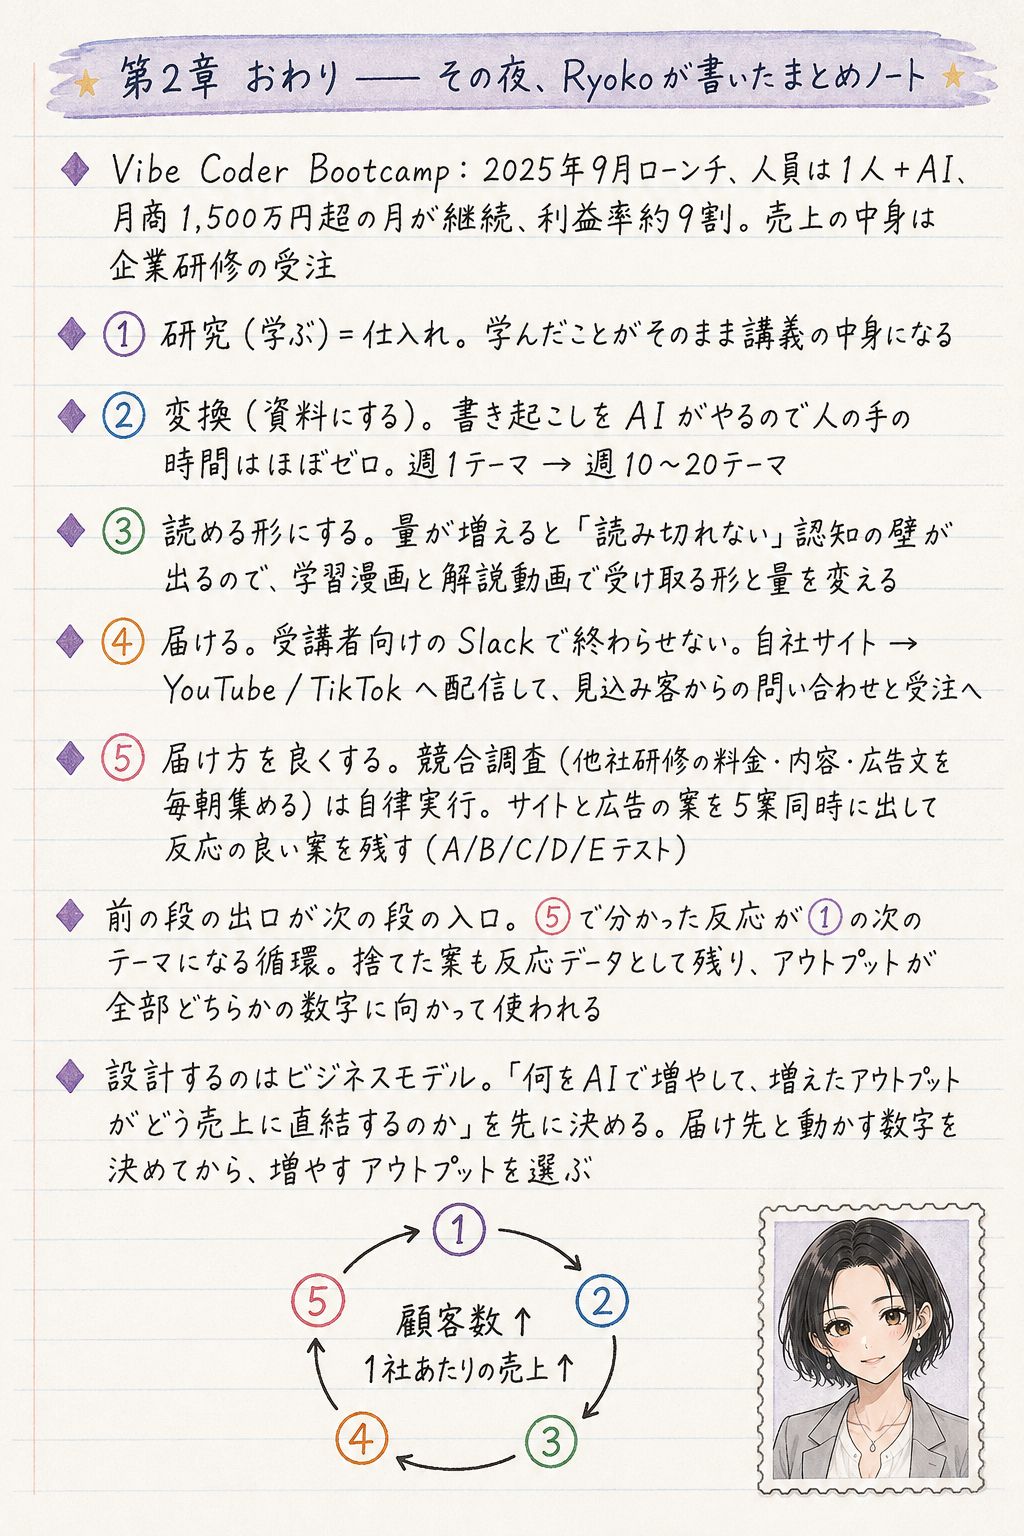 第2章 おわり —— その夜、Ryokoが書いたまとめノート
Vibe Coder Bootcamp：2025年9月ローンチ、人員は1人＋AI、
月商1,500万円超の月が継続、利益率約9割。売上の中身は
企業研修の受注
① 研究（学ぶ）＝仕入れ。学んだことがそのまま講義の中身になる
② 変換（資料にする）。書き起こしをAIがやるので人の手の
時間はほぼゼロ。週1テーマ → 週10〜20テーマ
③ 読める形にする。量が増えると「読み切れない」認知の壁が
出るので、学習漫画と解説動画で受け取る形と量を変える
④ 届ける。受講者向けのSlackで終わらせない。自社サイト →
YouTube / TikTokへ配信して、見込み客からの問い合わせと受注へ
⑤ 届け方を良くする。競合調査（他社研修の料金・内容・広告文を
毎朝集める）は自律実行。サイトと広告の案を5案同時に出して
反応の良い案を残す（A/B/C/D/Eテスト）
前の段の出口が次の段の入口。⑤で分かった反応が①の次の
テーマになる循環。捨てた案も反応データとして残り、アウトプットが
全部どちらかの数字に向かって使われる
設計するのはビジネスモデル。「何をAIで増やして、増えたアウトプット
がどう売上に直結するのか」を先に決める。届け先と動かす数字を
決めてから、増やすアウトプットを選ぶ
①
②
③
④
⑤
顧客数↑
1社あたりの売上↑